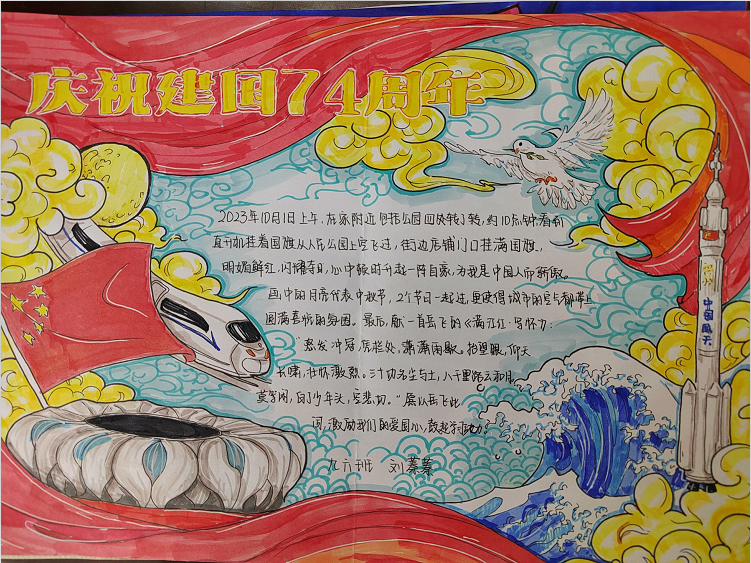 庆祝建国74周年
2023年10月1日上午,在家附近的人民公园四处转了转,约10点钟看到
直升机挂着国旗从人民公园上空飞过,街边店铺门口挂满国旗,
明媚鲜红,闪耀夺目,心中顿时升起一阵自豪,为我是中国人而骄傲。
画中的月亮代表中秋节,2个节日一起过,更使得城市的空气都带上
圆满喜悦的氛围。最后,献一首岳飞的《满江红·写怀》:
“怒发冲冠,凭栏处,潇潇雨歇。抬望眼,仰天
长啸,壮怀激烈。三十功名尘与土,八千里路云和月,
莫等闲,白了少年头,空悲切。”
词,激励我们的爱国心,鼓起行动力!
九六班 刘蓁蓁
中国航天